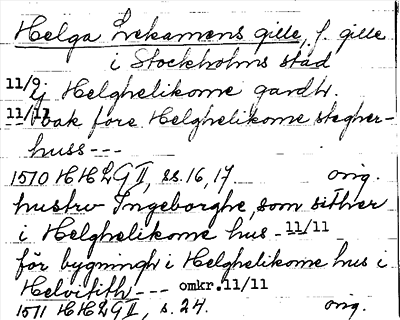 Helga Lekamens gille, f. gille
i Stockholms stad
11/9 j Helghelikome gardh.
11/11 bak före Helghelikome stegher-
huss ---
1510 HHLG II, ss. 16, 17. orig.
hustrv Ingeborghe, som sither
i Helghelikome hus - 11/11
för bygningh i Helghelikome hus i
Helvitith --- omkr. 11/11
1511 HHLG II, s. 24. orig.